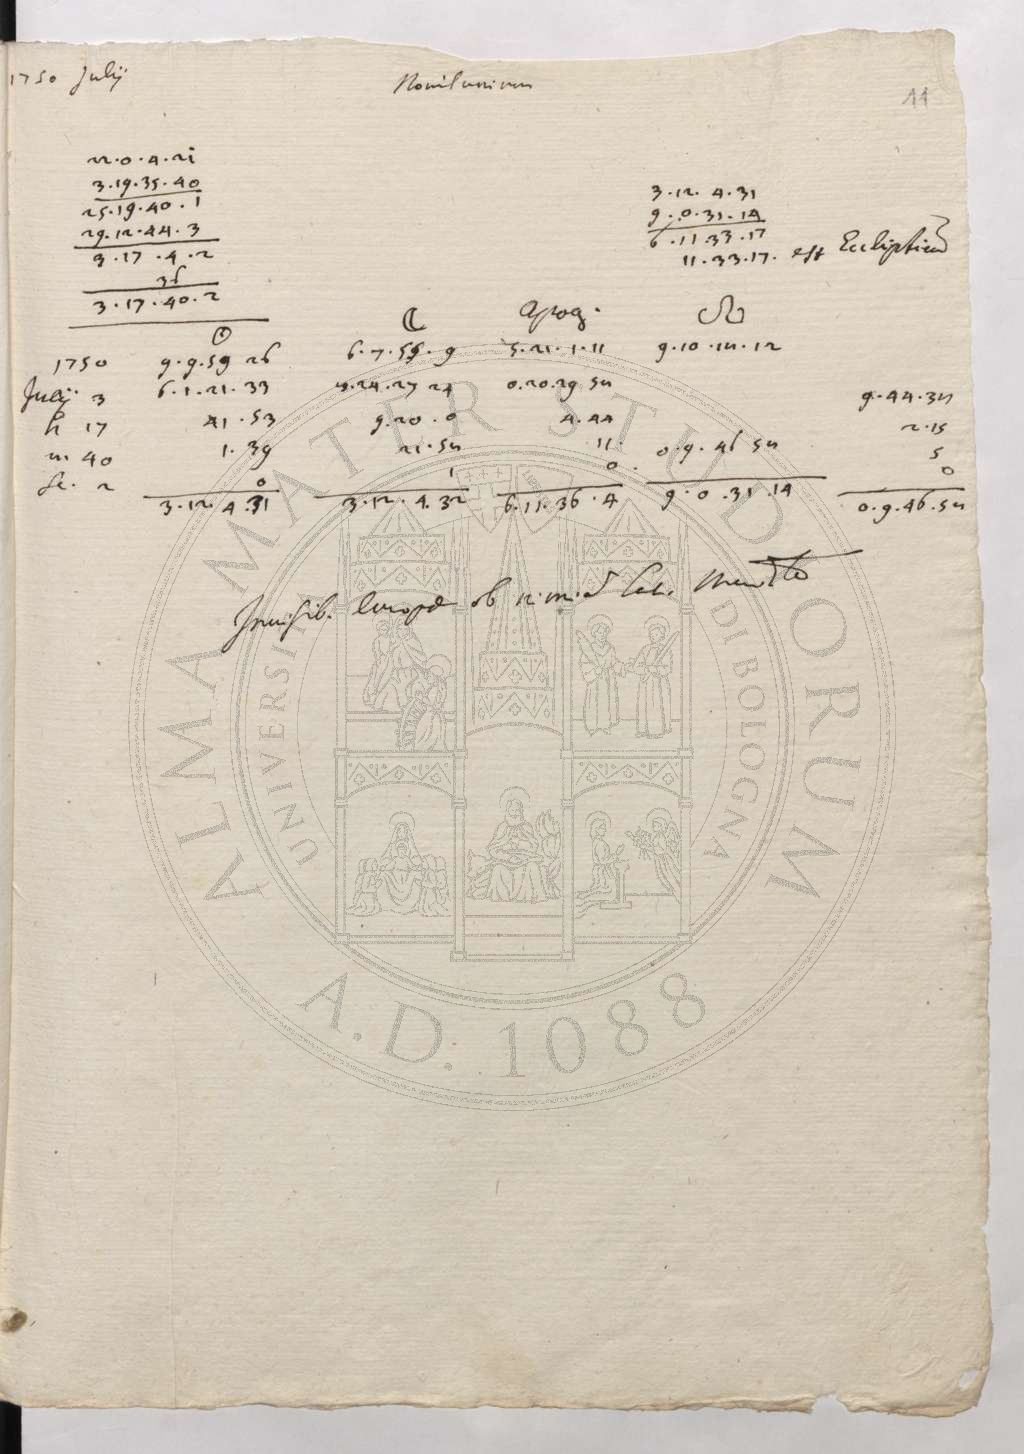 1750 Julij Novilunium 11
22.0.4.21
3.19.35.40
25.19.40.1
29.12.44.3
3.17.4.2
36
3.17.40.2
3.12.4.31
9.0.31.14
6.11.33.17
11.33.17. est Eccliptica
☉ ☾ Apog. ☊
1750 9.9.59 26 6.7.55.9 5.21.1.11 9.10.18.12
Julij 3 6.1.21.33 8.24.27 24 0.20.29 58 9.44.38
h 17 41.53 9.20.0 4.44 2.15
m 40 1.39 21.58 11. 0.9.46 58 5
se. 2 0 1 0. 0
3.12.4.31 3.12.4.32 6.11.36.4 9.0.31.14 0.9.46.58
Invisib. Europæ ob lat.
ALMA MATER STUDIORUM
UNIVERSITÀ DI BOLOGNA
A.D. 1088